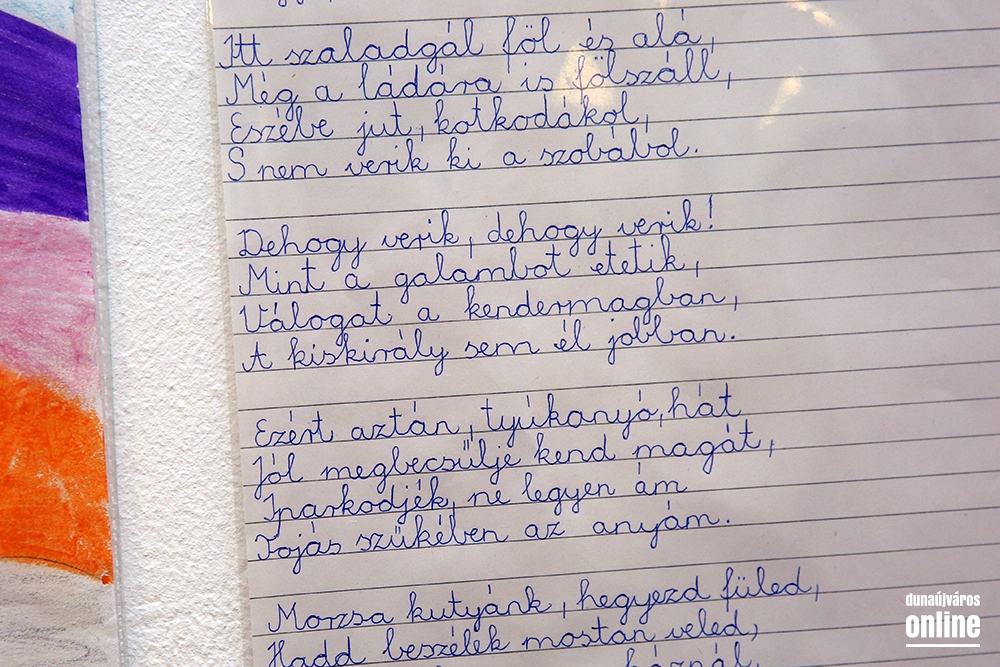 Itt szaladgál föl és alá,
Még a ládára is fölszáll,
Eszébe jut, kotkodákol,
S nem verik ki a szobából.
Dehogy verik, dehogy verik!
Mint a galambot etetik,
Válogat a kendermagban,
A kiskirály sem él jobban.
Ezért aztán, tyúkanyó, hát
Jól megbecsülje kend magát,
Iparkodjék, ne legyen ám
Tojás szűkében az anyám.
Morzsa kutyánk, hegyezd füled,
Hadd beszélek mostan veled,
háznál,
dunaújváros
online